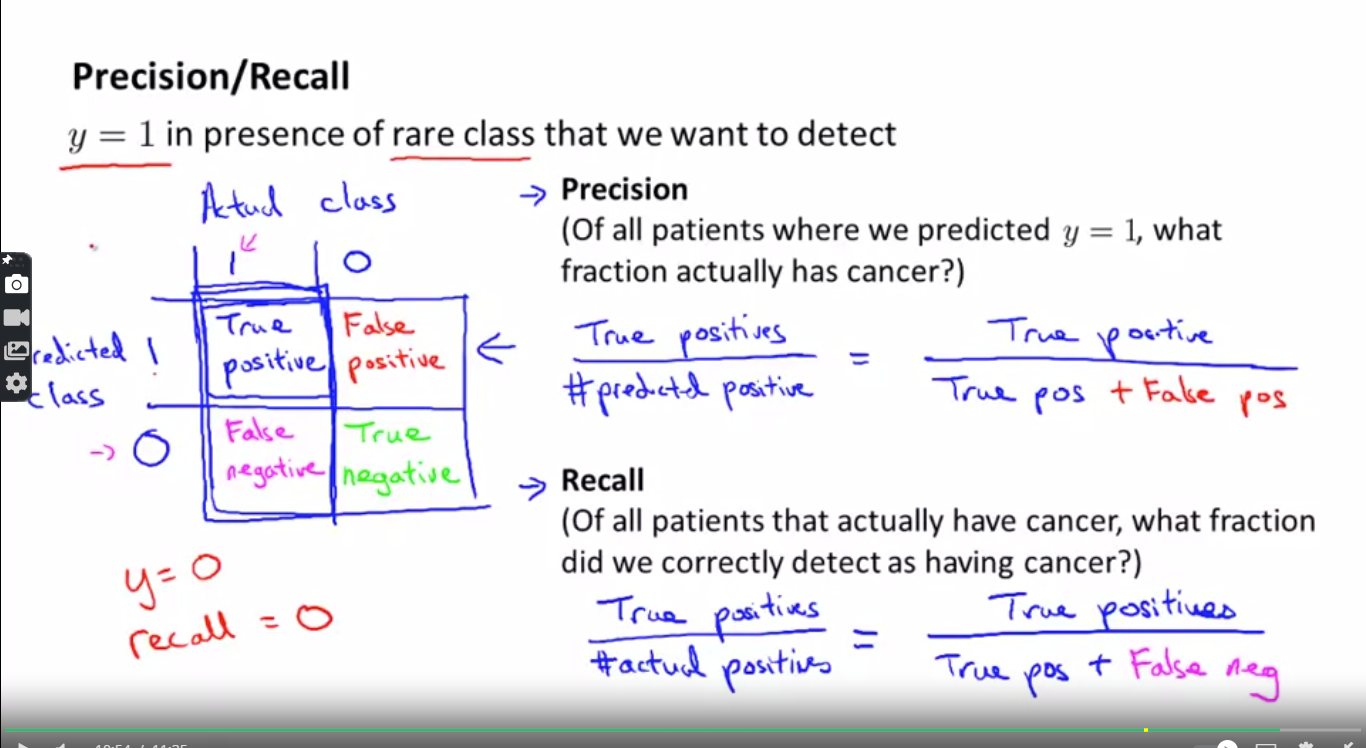 Precision/Recall
y = 1 in presence of rare class that we want to detect
Actual class
1 0
True positive
False positive
redicted 1
class
0
False negative
True negative
y = 0
recall = 0
→ Precision
(Of all patients where we predicted y = 1, what
fraction actually has cancer?)
True positives
#predicted positive
=
True positive
True pos + False pos
→ Recall
(Of all patients that actually have cancer, what fraction
did we correctly detect as having cancer?)
True positives
#actual positives
=
True positives
True pos + False neg